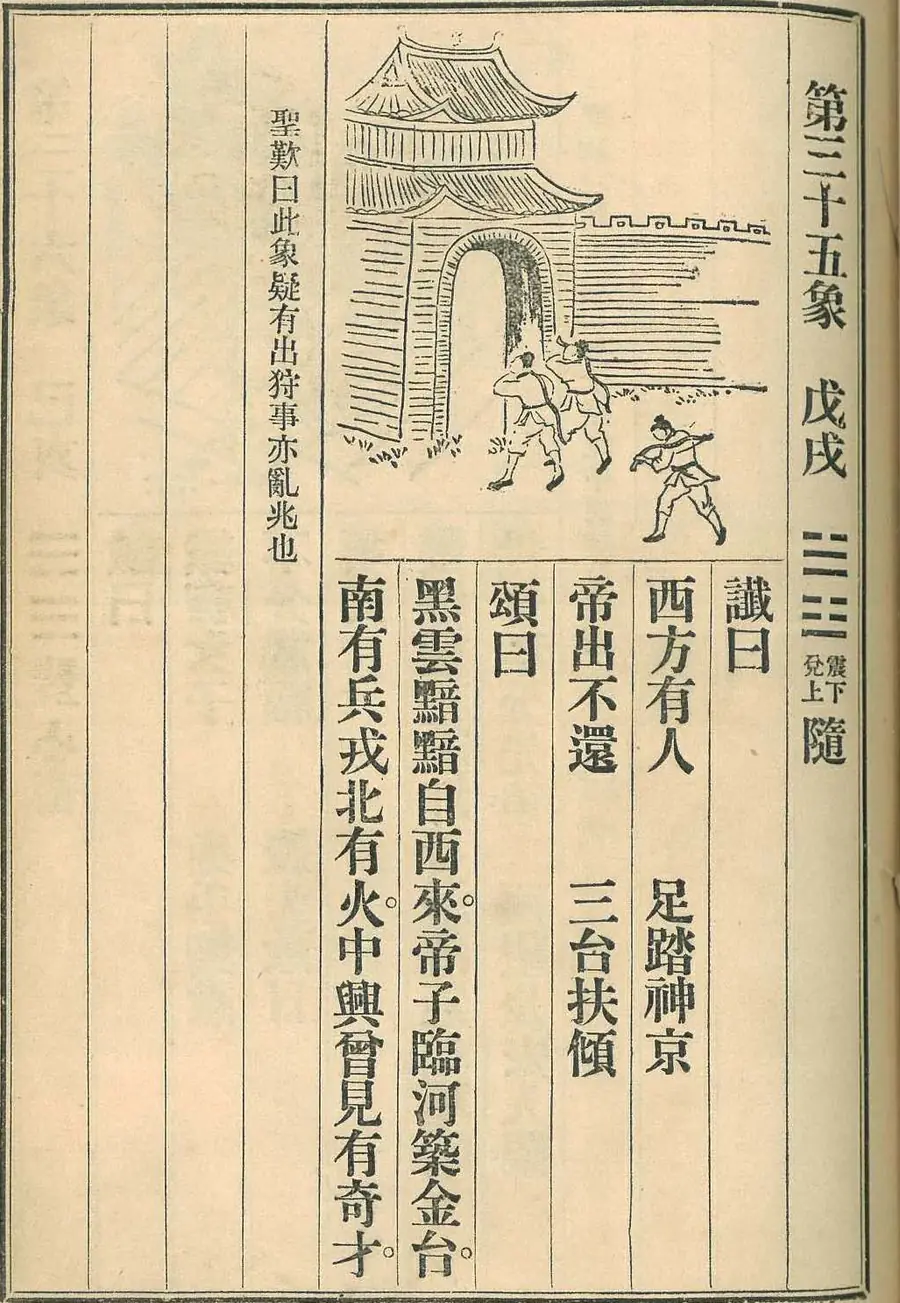 第三十五象 戊戌 ䷐ 震下兌上 隨
讖曰
西方有人 足踏神京
帝出不還 三台扶傾
頌曰
黑雲黯黯自西來。帝子臨河築金台。
南有兵戎北有火。中興曾見有奇才。
聖歎曰此象疑有出狩事亦亂兆也